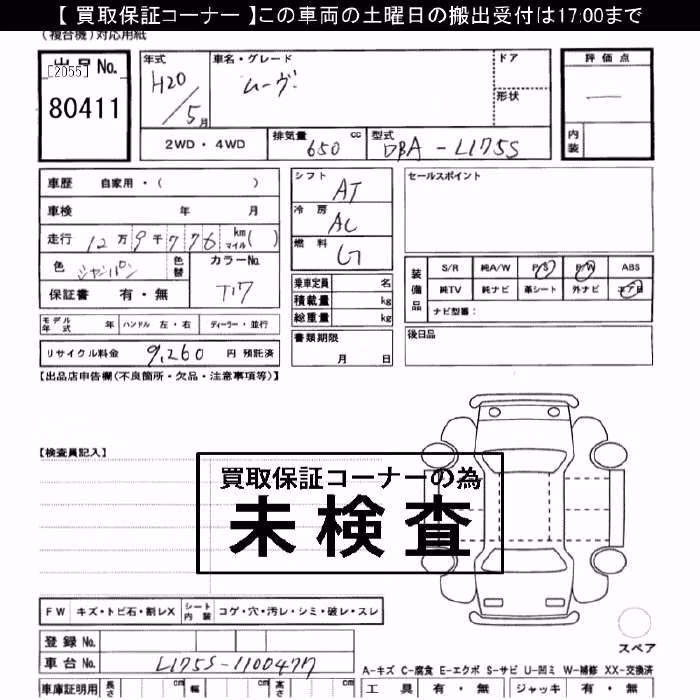 【 買取保証コーナー 】この車両の土曜日の搬出受付は17:00まで
(複合機)対応用紙
出品No. [2055] 80411
年式 H20/5月
車名・グレード ムーヴ
ドア
形状
2WD・4WD
排気量 650 cc
型式 DBA-L175S
評価点 —
内装
車歴 自家用・( )
車検 年 月
走行 12万9千776 km マイル( )
色 シャンパン 色替
カラーNo. T17
保証書 有・無
シフト AT
冷房 AC
燃料 G
乗車定員 名
積載量 kg
総重量 kg
書類期限 月 日
セールスポイント
装備品
S/R 純A/W P/S P/W ABS
純TV 純ナビ 革シート 外ナビ エアB
ナビ型番:
後日品
モデル年式 年 ハンドル 左・右 ディーラー・並行
リサイクル料金 9,260 円 預託済
【出品店申告欄(不良箇所・欠品・注意事項等)】
【検査員記入】
買取保証コーナーの為
未検査
FW キズ・トビ石・割レX シート内装 コゲ・穴・汚レ・シミ・破レ・スレ
登録No.
車台No. L175S-1100477
スペア
A-キズ C-腐食 E-エクボ S-サビ U-凹ミ W-補修 XX-交換済
車庫証明用 長さ cm 幅 cm 高さ cm
工具 有・無 ジャッキ 有・無